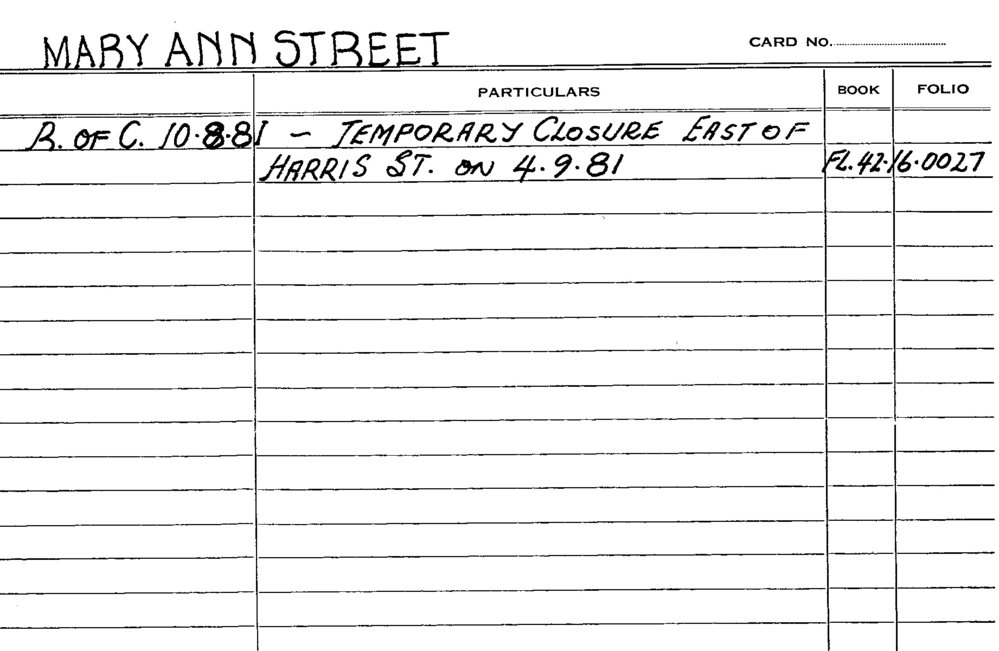 MARY ANN STREET CARD No.
PARTICULARS BOOK FOLIO
R. OF C. 10.8.81 – TEMPORARY CLOSURE EAST OF
HARRIS ST. ON 4.9.81 FL.42.16.0027